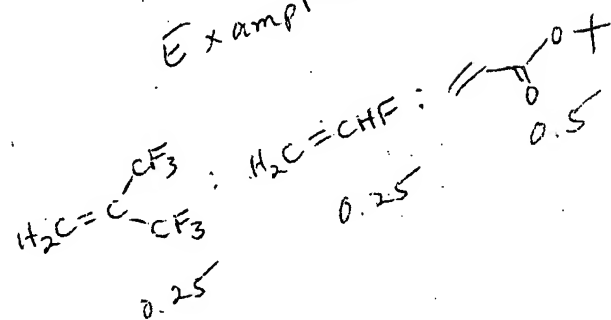 Exampl
H₂C=C
CF₃
CF₃
:
H₂C=CHF
:
O
O
0.25
0.25
0.5